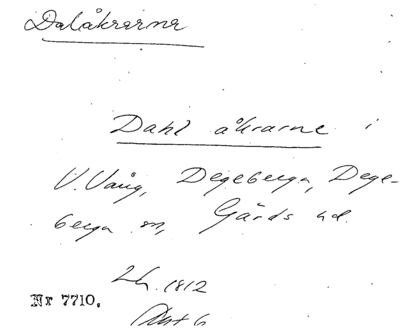 Dalåkrarne
Dahl åkrarne i
V. Vång, Degeberga, Dege-
berga sn, Gärds hd.
Lh. 1812
Nr 7710.
Akt 6